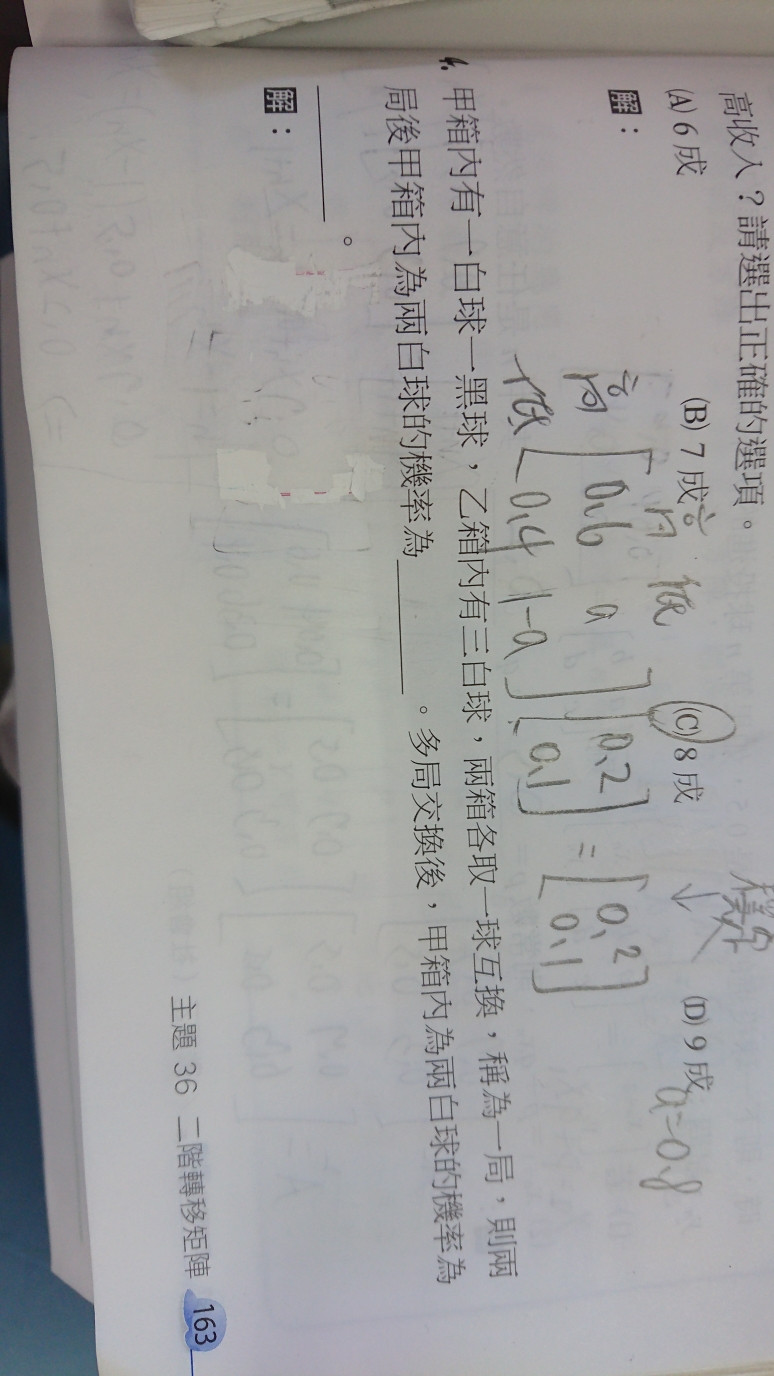 高收入？請選出正確的選項。
(A) 6 成 (B) 7 成 (C) 8 成 (D) 9 成
解：
a=0.8
高 低
高 [0.6 a] [0.2] = [0.2]
低 [0.4 1-a] [0.1] [0.1]
4. 甲箱內有一白球一黑球，乙箱內有三白球，兩箱各取一球互換，稱為一局，則兩
局後甲箱內為兩白球的機率為＿＿＿＿。多局交換後，甲箱內為兩白球的機率為
＿＿＿＿。
解：
主題 36 二階轉移矩陣 163